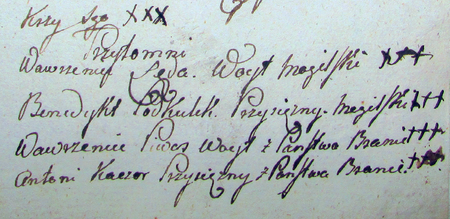 Krzy Szo XXX
Przytomni
Wawrzeniec Seda. Woyt Mogilski +++
Benedykt Podkulek. Przysięzny. Mogilski +++
Wawrzeniec Woyt z Państwa Branic +++
Antoni Kaczor Przysięzny z Państwa Branic. +++